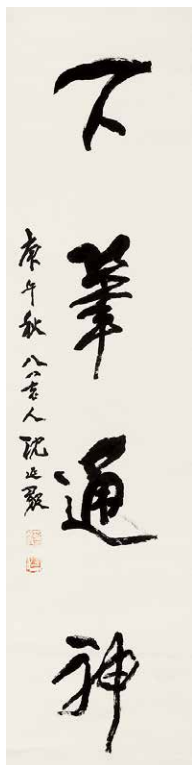 下筆通神
庚午秋八八老人沈延毅